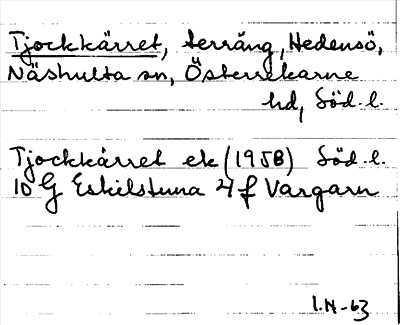 Tjockkärret, terräng, Hedensö,
Näshulta sn, Österrekarne
hd, Söd. l.
Tjockkärret ek (1958) Söd. l.
10 G Eskilstuna 4 f Vargarn
I.N-63